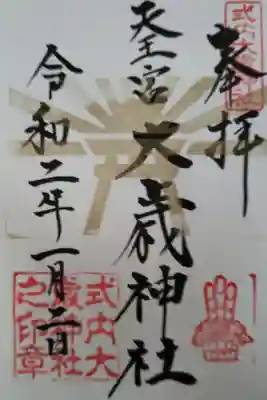 奉拝
式内大歳神社
天王宮
大歳神社
令和二年一月二日
式内大
歳神社
之印章